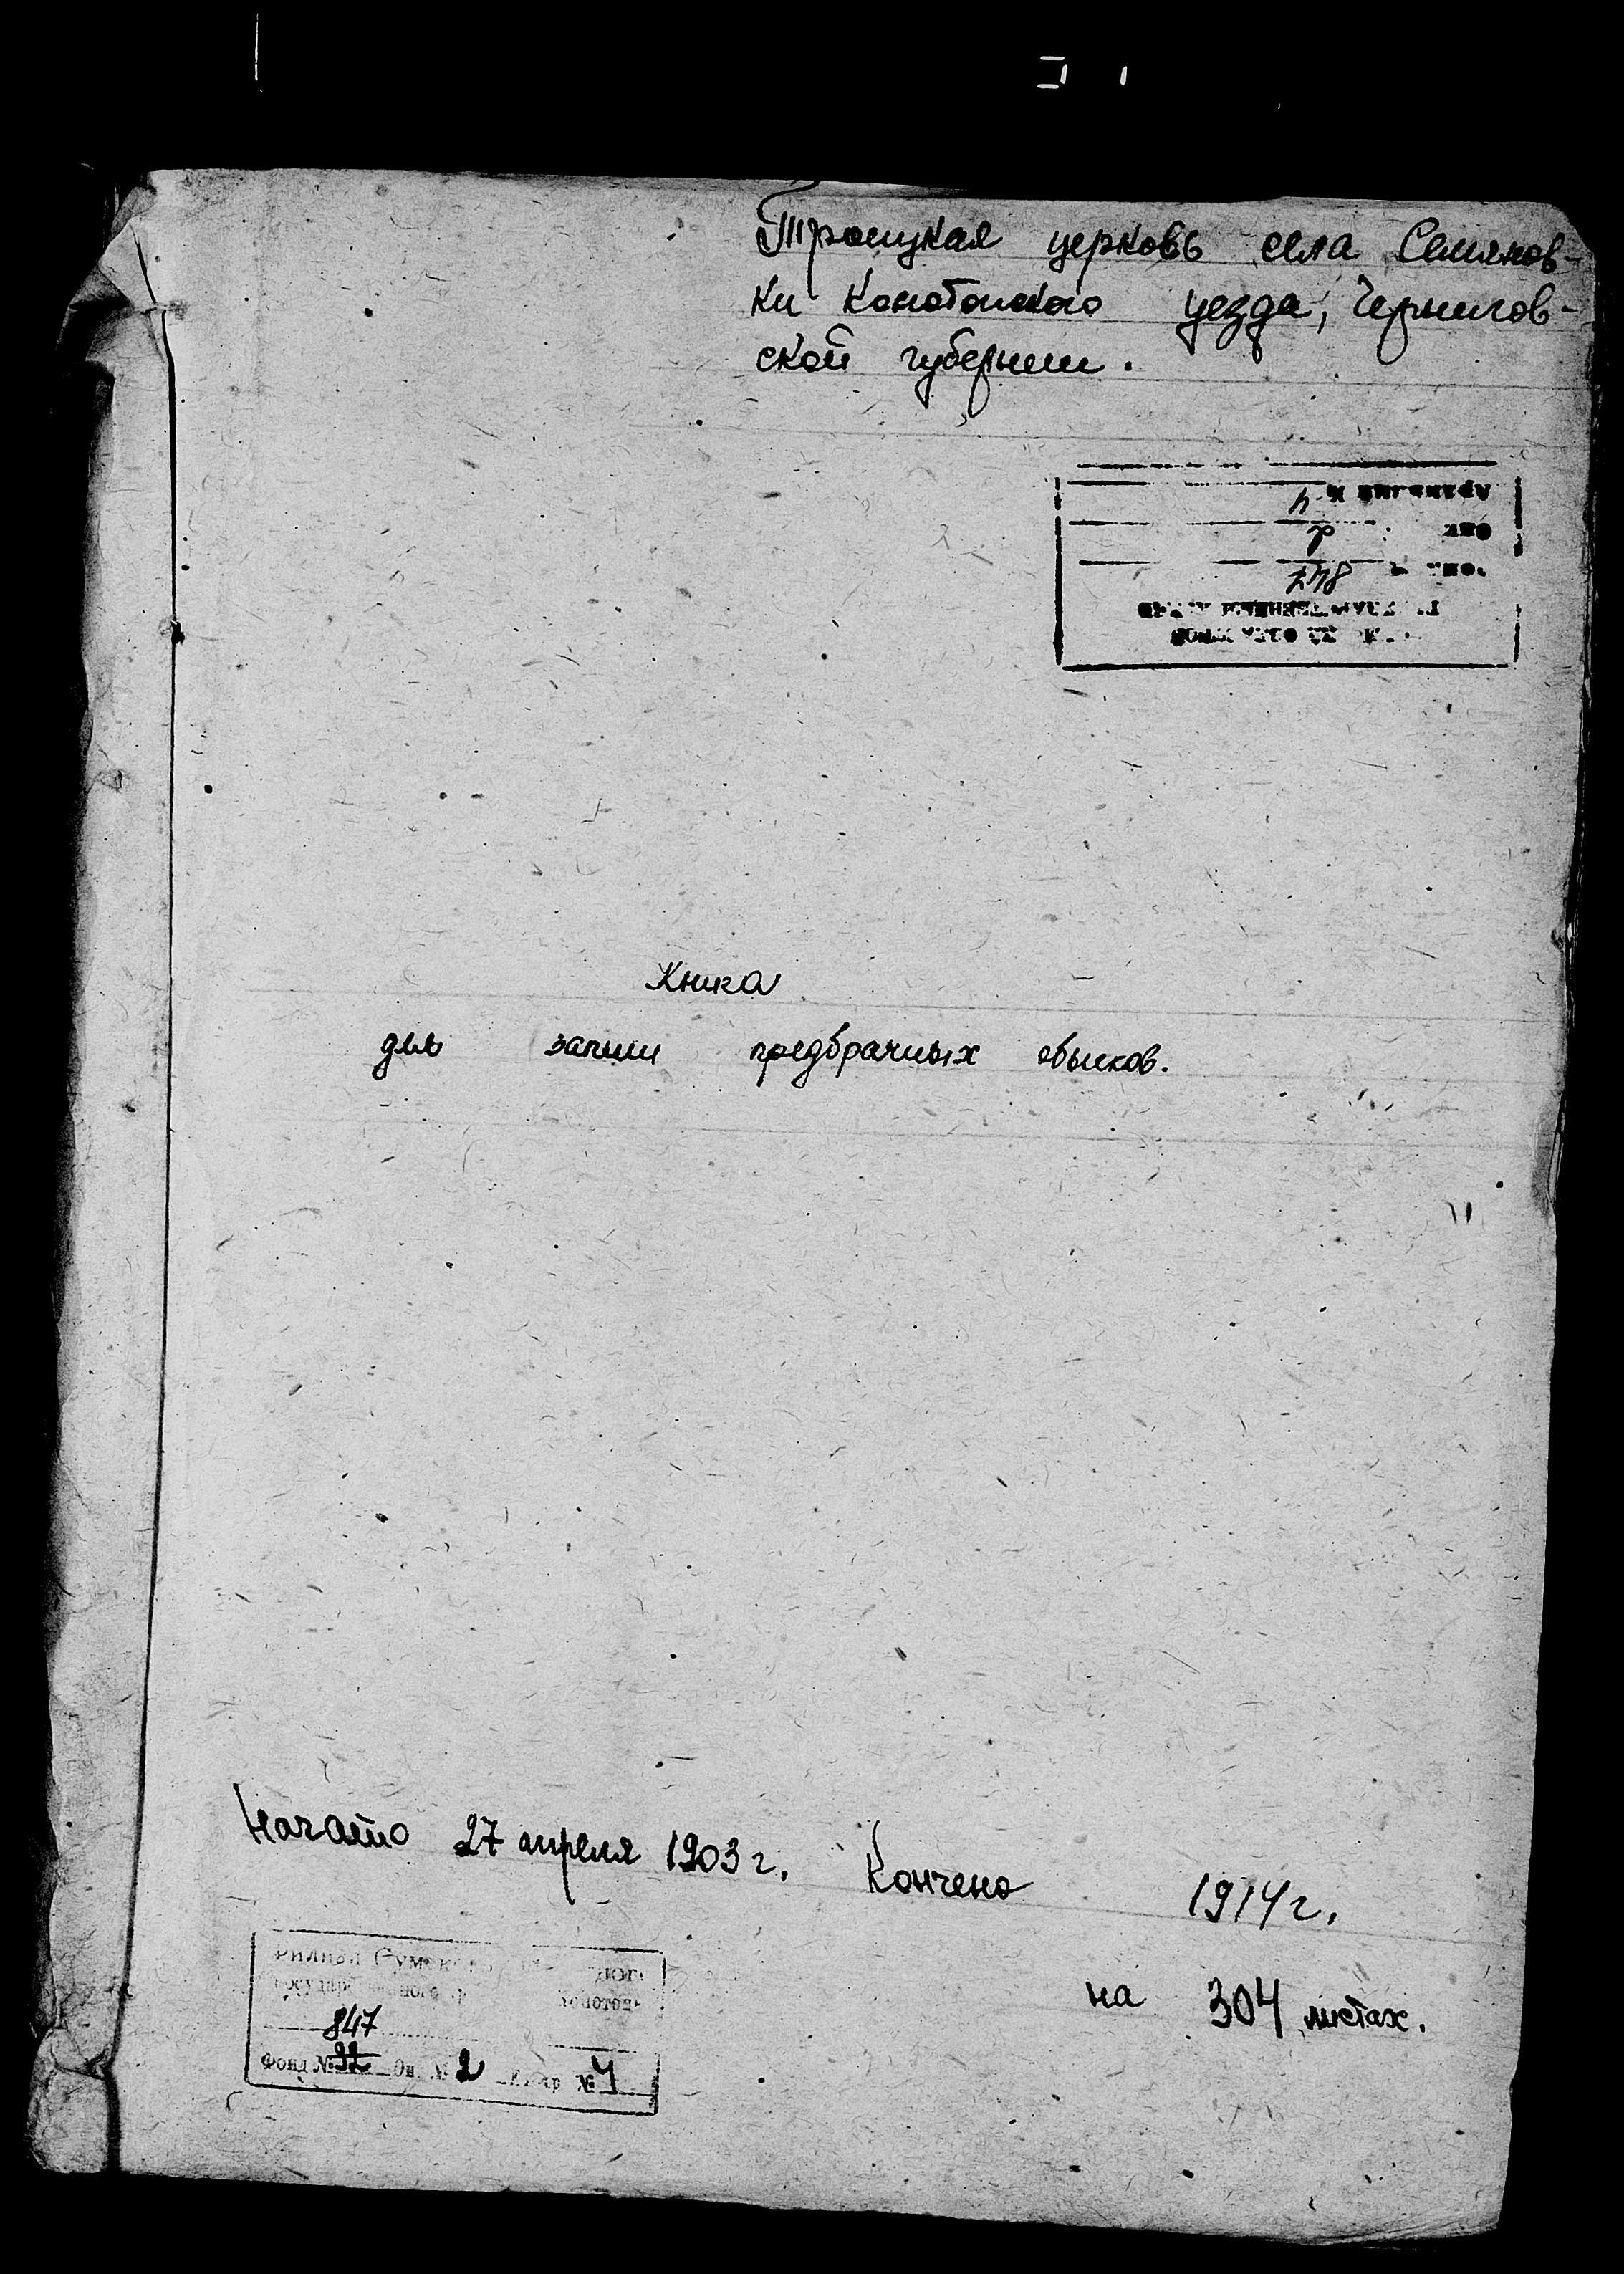 Троицкая церковь села Семянов-
ки Конотопского уезда, Чернигов-
ской губернии.
847
2
4
Книга
для записи предбрачных обысков.
Начато 27 апреля 1903 г. Кончено 1914 г.
на 304 листах.
Филиал Сумского
государственного
847
Фонд № 22 Оп. № 2 № 4